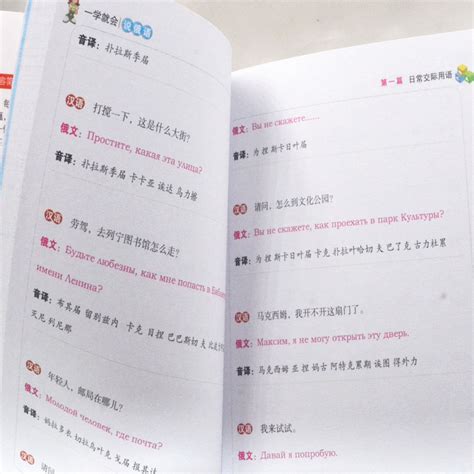 一学就会 说俄语
音译：朴拉斯季届
汉语 打搅一下，这是什么大街？
俄文：Простите, какая эта улица?
音译：朴拉斯季届 卡卡亚 诶达 乌力擦
汉语 劳驾，去列宁图书馆怎么走？
俄文：Будьте любезны, как мне попасть в
имени Ленина?
音译：布其届 留别兹内 卡克 目捏 巴巴斯切
灭尼 列尼那
汉语 年轻人，邮局在哪儿？
俄文：Молодой человек, где почта?
音译：妈拉多衣 切拉乌叶克 戈届 报其达
汉语 请问
第一篇 日常交际用语
俄文：Вы не скажете......
音译：为 捏 斯卡日叶届
汉语 请问，怎么到文化公园？
俄文：Вы не скажете, как проехать в парк Культуры?
音译：为 捏 斯卡日叶届 卡克 朴拉叶哈切 夫 巴了克 古力杜累
汉语 马克西姆，我开不开这扇门了。
俄文：Максим, я не могу открыть эту дверь.
音译：马克西姆 亚 捏 妈古 阿特克累期 诶图 得外力
汉语 我来试试。
俄文：Давай я попробую.